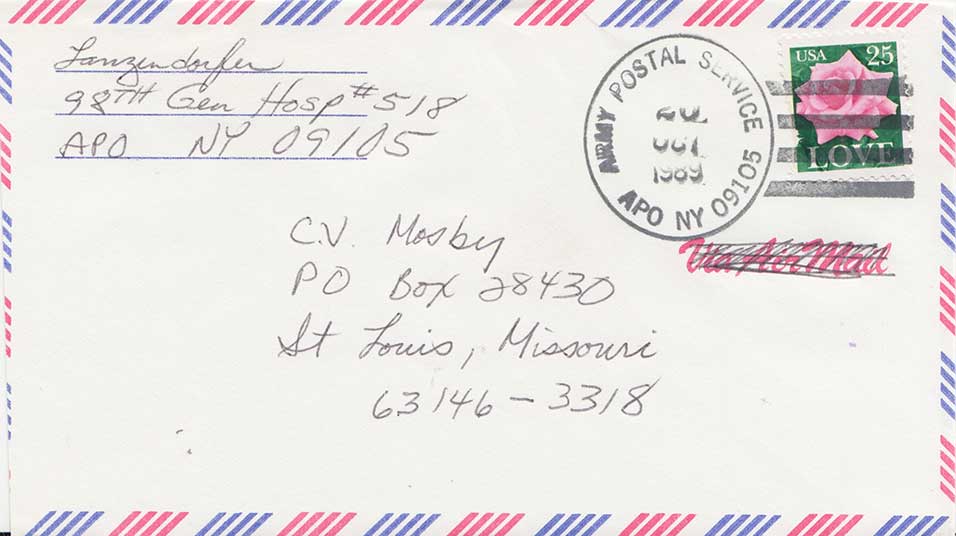 Lanzendorfer
98TH Gen Hosp #518
APO NY 09105
ARMY POSTAL SERVICE
20
OCT
1989
APO NY 09105
USA 25
LOVE
Via Air Mail
C.V. Mosby
PO Box 28430
St Louis, Missouri
63146-3318